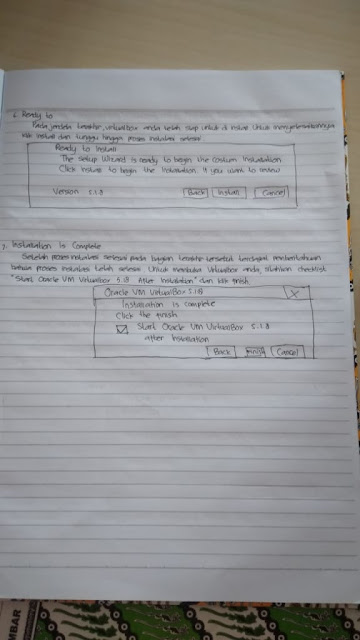 6. Ready to
Pada jendela terakhir, virtualbox anda telah siap untuk di install untuk menyelesaikannya
klik install dan tunggu hingga proses instalasi selesai
Ready to Install
The setup Wizard is ready to begin the Custom Installation
Click install to begin the Installation. If you want to review
Version 5.1.8 Back Install Cancel
7. Installation is Complete
Setelah proses instalasi selesai pada bagian terakhir tersebut terdapat pemberitahuan
bahwa proses instalasi telah selesai untuk membuka Virtualbox anda, silahkan checklist
"Start Oracle VM Virtualbox 5.18 After Installation" dan klik finish
Oracle VM VirtualBox 5.18 X
Installation is complete
Click the finish
Start Oracle VM VirtualBox 5.1.8
after Installation
Back Finish Cancel
MBAR